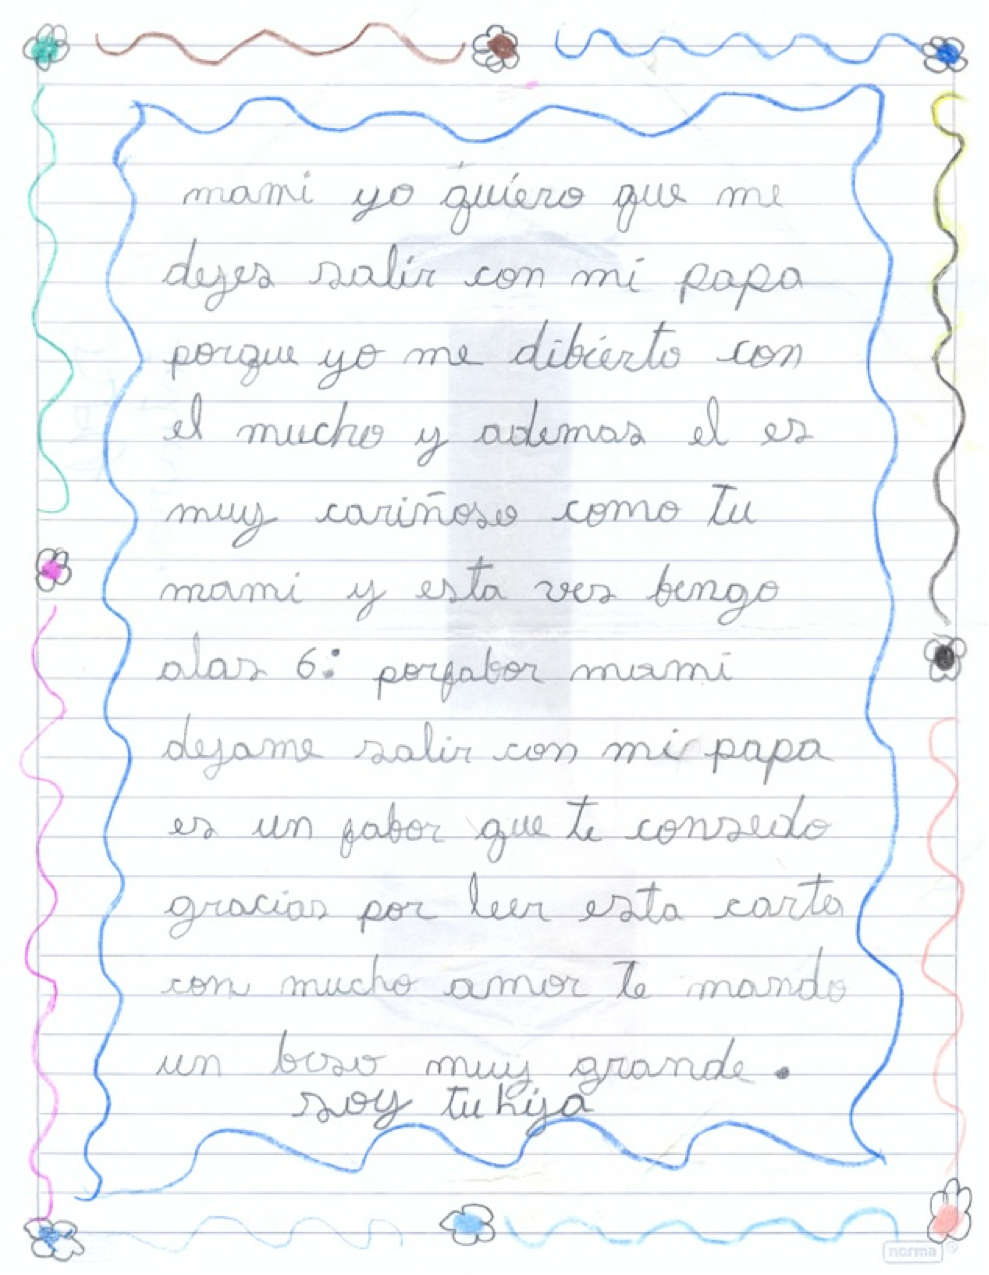 mami yo quiero que me
dejes salir con mi papa
porque yo me dibierto con
el mucho y ademas el es
muy cariñoso como tu
mami y esta ves bengo
alas 6: porfabor mami
dejame salir con mi papa
es un fabor que te consedo
gracias por leer esta carta
con mucho amor te mando
un beso muy grande.
soy tu hija
norma®